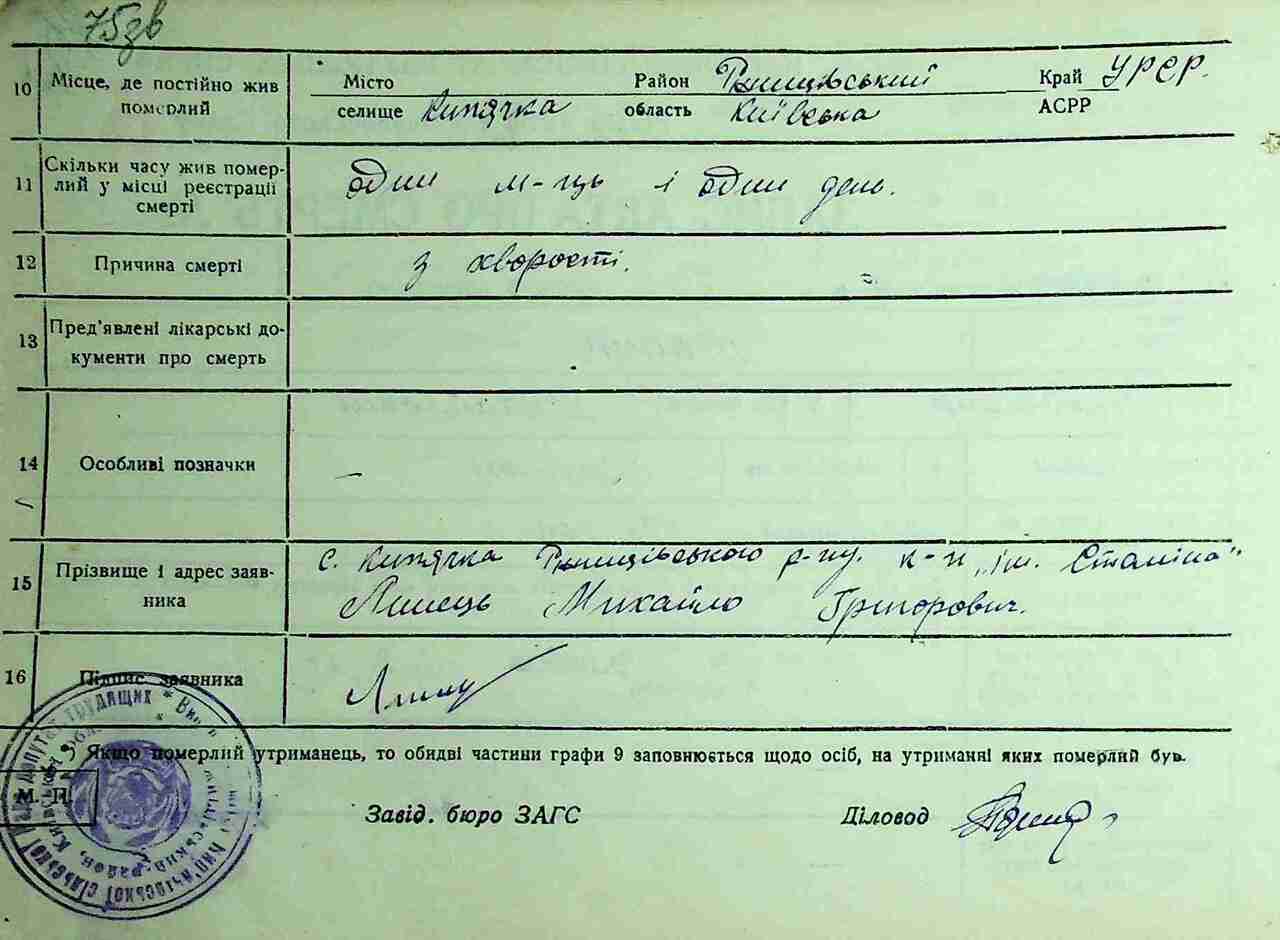 75зв
10 Місце, де постійно жив Місто Район Ржищівський Край УРСР.
померлий селище Кип'ячка область Київська АСРР
11 Скільки часу жив помер-
лий у місці реєстрації один м-ць і один день.
смерті
12 Причина смерті з хворості. =
13 Пред'явлені лікарські до-
кументи про смерть
14 Особливі позначки —
15 Прізвище і адрес заяв- с. Кип'ячка Ржищівського р-ну. к-п „ім. Сталіна"
ника Линець Михайло Григорович.
16 Підпис заявника
Якщо померлий утриманець, то обидві частини графи 9 заповнюється щодо осіб, на утриманні яких померлий був.
М. П.
Завід. бюро ЗАГС Діловод